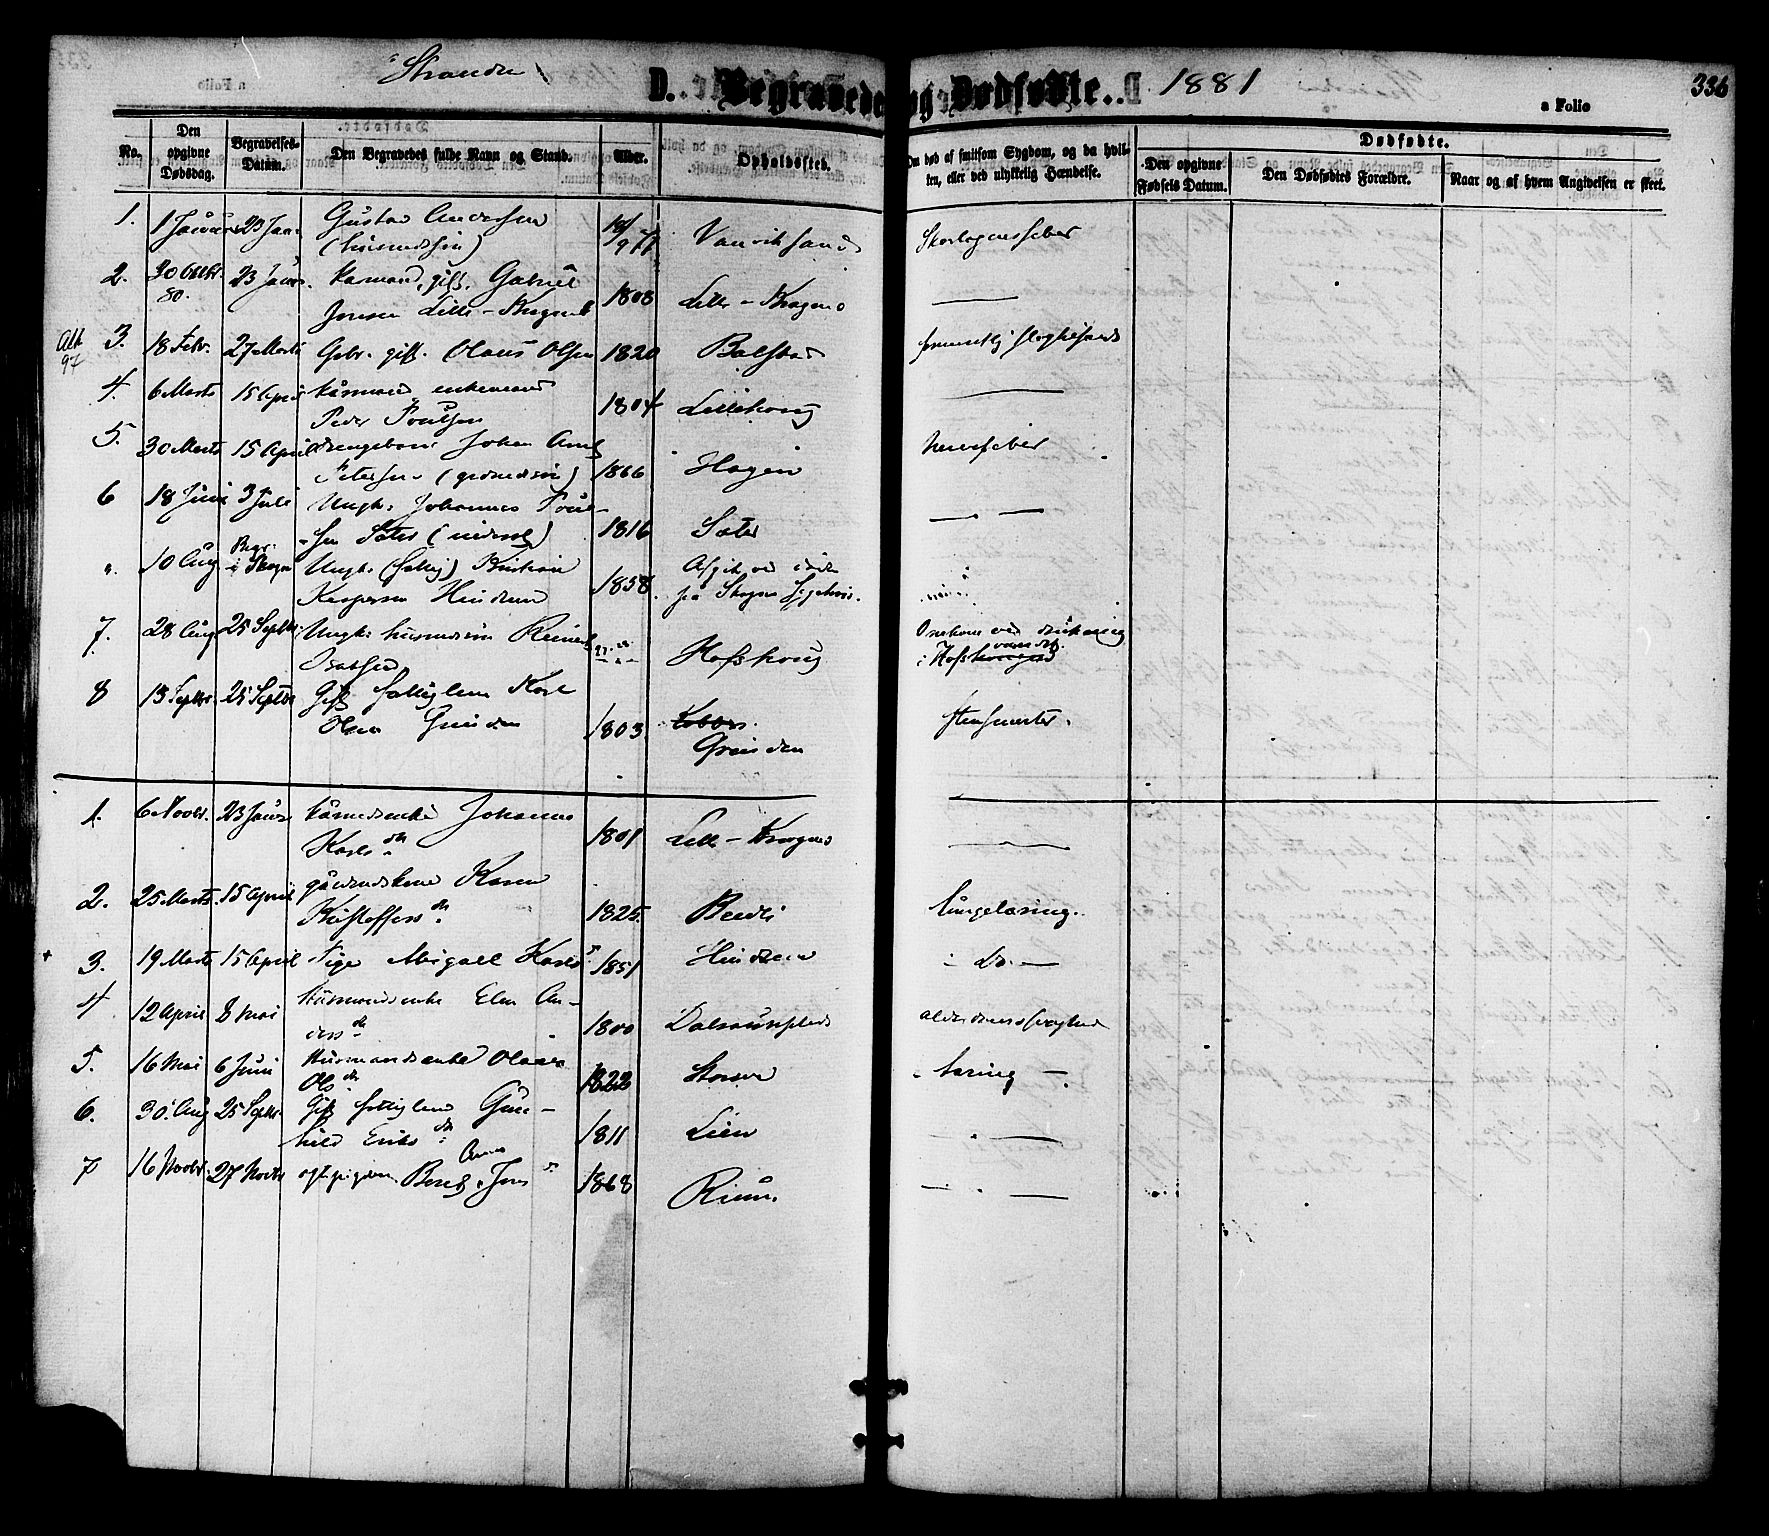 Stranden 1881 336
D. Begravede og Dødfødte. a Folio
No. Den opgivne Dødsdag. Begravelses-Datum. Den Begravedes fulde Navn og Stand. Alder. Opholdssted. Om død af smitsom Sygdom, og da hvilken, eller ved ulykkelig Hændelse. Dødfødte.
Den opgivne Fødsels Datum. Den Dødfødtes Forældre. Naar og af hvem Angivelsen er skeet.
1. 1 Januar 23 Jan. Gustav Anderssen 18/9 77 Vanvik Skarlagensfeber
(husmdssøn)
2. 30 Oktbr 80. 23 Januar. kaarmand, gift. Gabriel
Jonsen Lille-Kragnes 1808 Lille-Kragnes
Att 97 3. 18 Febr. 27 Marts Gbr. gift. Olaus Olsen 1820 Balstad
4. 6 Marts 15 April kaarmand enkemand
Peder Poulsen 1804 Lillehaug
5. 30 Marts 15 April drengebarn Johan
Petersen (grdmdssøn) 1866 Hagen nervefeber
6 18 Juni 3 Juli Ungk. Johannes Poul-
sen Sæter (inderst) 1816 Sæter
". 10 Aug Begr. i Skogn Ungk. (fattig) Kristian
Kaspersen Hindrem 1858. Afgik ved døden
på Skogns Sygehus.
7. 28 Aug 25 Septbr Ungk. husmdssøn Reinert
Hofshaug Omkom ved drukning
i Hofs vandet
8 13 Septbr. 25 Septbr Gift fattiglem Karl
Olsen Grinden 1803. Grinden stensmerter.
1. 6 Novbr. 23 Januar kaarmdsenke Johanna
Karls dtr. 1801 Lille-Kragnes
2. 25 Marts 15 April gaardmdskone Karen
Kristoffers dtr. 1825. lungetæring.
3. 19 Marts 15 April Pige Abigael Karls dr 1851 Hindrem Do.
4 12 April 8 Mai Husmandsenke Elen An-
ders dtr 1800 Dalsaunplads alderdomssvaghed
5. 16 Mai 6 Juni Husmandsenke Olava
Ols dtr 1822 Storve tæring
6. 30 Aug 25 Septbr. Gift fattiglem Gun-
hild Eriks dtr. 1811 Lien
7 16 Novbr. 27 Novbr Beret Anna Jons dr 1868